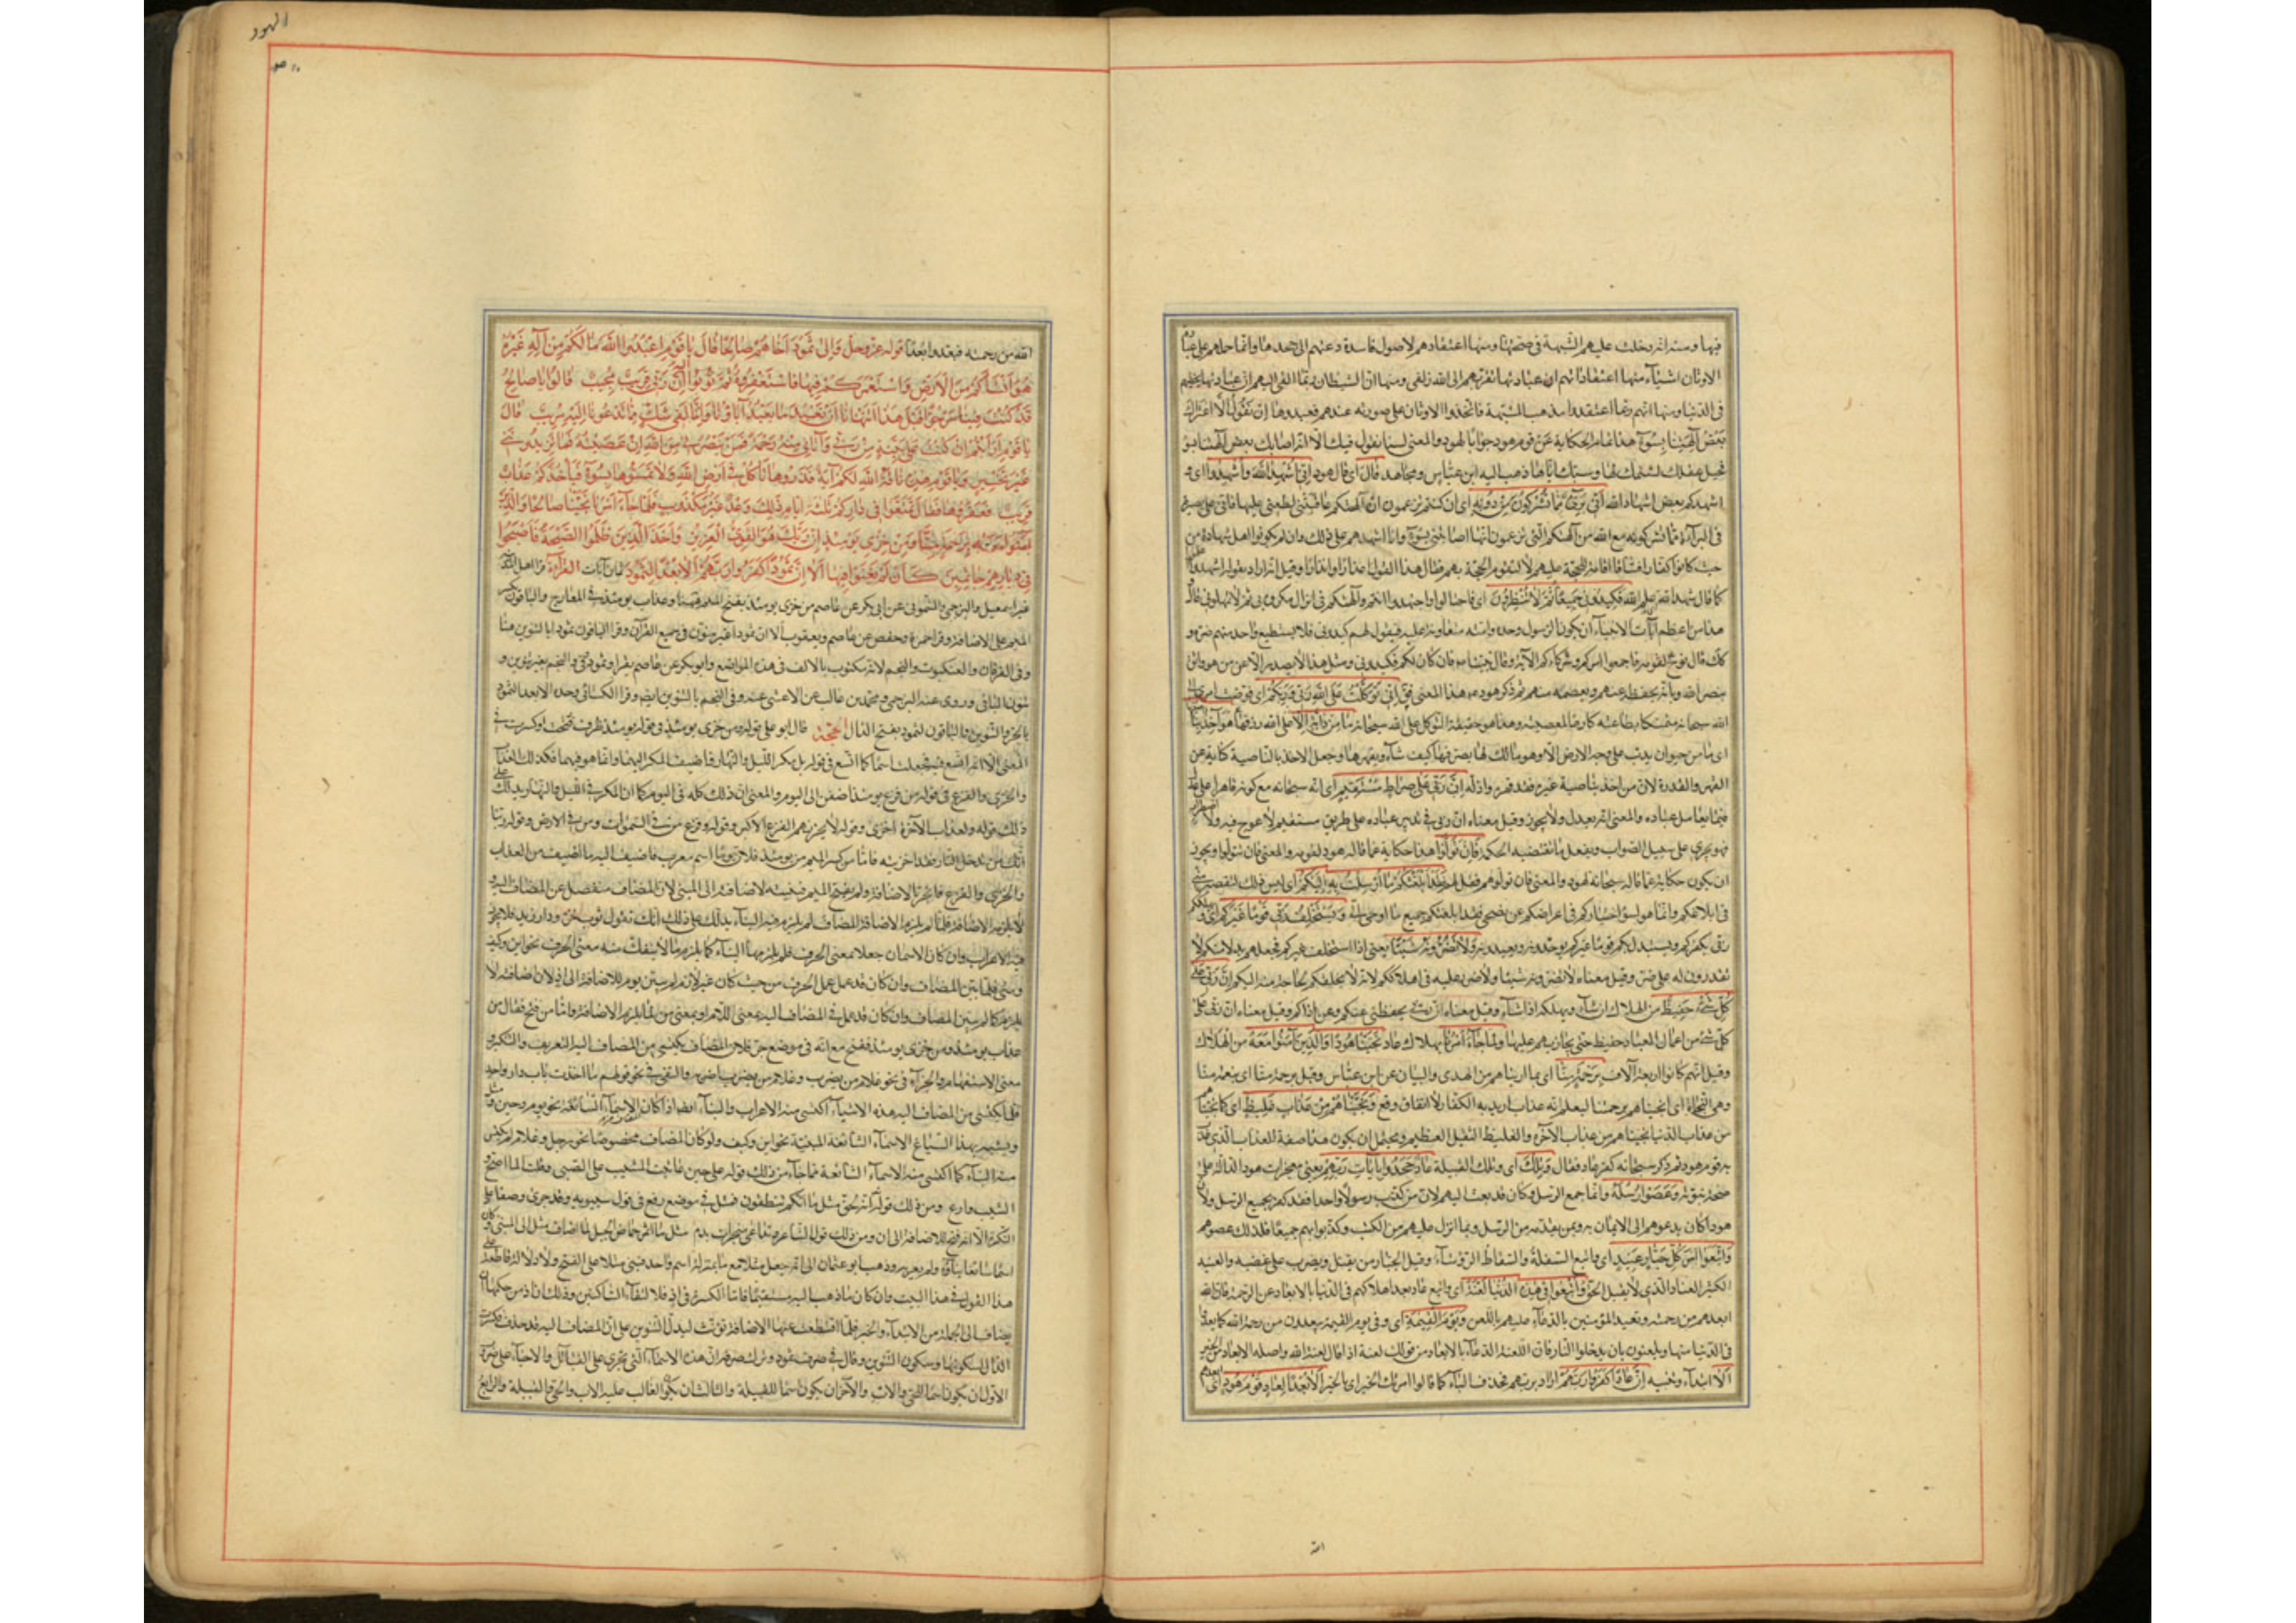 فيها ومنها انه دخلت عليهم الشبهة في صحتها ومنها اعتقادهم لاصول فاسدة دعتهم الى جحدها وانما حملهم على عبادة
الاوثان اشياء منها اعتقاداتهم ان عبادتها تقربهم الى الله زلفى ومنها ان الشيطان ربما القى اليهم ان عبادتها تحظيهم
في الدنيا ومنها انهم ربما اعتقدوا مذهب المشبهة فاتخذوا الاوثان على صورته عندهم فعبدوها ان نقول الا اعتراك
بعض آلهتنا بسوء هذا تمام الحكاية عن قوم هود جوابا لهود والمعنى لسنا نقول فيك الا انه اصابك بعض آلهتنا بسوء
فخبل عقلك لشتمك لها وسبك اياها ذهب اليه ابن عباس ومجاهد قال اي قال هود اني اشهد الله واشهدوا اي و
اشهدكم بعض اشهاد الله اني بريء مما تشركون من دونه اي ان كنتم تزعمون ان آلهتكم عاقبتني لطعني عليها فاني على بصيرة
في البراءة مما تشركونه مع الله من آلهتكم التي تزعمون انها اصابتني بسوء وانما اشهدهم على ذلك وان لم يكونوا اهل شهادة من
حيث كانوا كفارا فساقا اقامة للحجة عليهم لا لتقوم الحجة بهم فقال هذا القول اعذارا وانذارا وقيل انه اراد بقوله اشهدوا
كما قال شهد الله علم الله فكيدوني جميعا ثم لا تنظرون اي فاحتالوا واجتهدوا انتم وآلهتكم في انزال مكروه بي ثم لا تمهلوني قال
هذا من اعظم آيات الانبياء ان يكون الرسول وحده وامته متعاونة عليه فيقول لهم كيدوني فلا يستطيع واحد منهم ضره و
كذلك قال نوح لقومه فاجمعوا امركم وشركاءكم الآية وقال نبينا ص فان كان لكم كيد فكيدوني ومثل هذا لا يصدر الا عن من هو واثق
بنصر الله وبانه يحفظه عنهم ويعصمه منهم ثم ذكر هود ع هذا المعنى فق اني توكلت على الله ربي وربكم اي فوضت امري الى
الله سبحانه متمسكا بطاعته تاركا لمعصيته وهذا هو حقيقة التوكل على الله سبحانه ما من دابة الا هو آخذ بناصيتها
اي ما من حيوان يدب على وجه الارض الا وهو مالك لها يصرفها كيف شاء ويقهرها وجعل الاخذ بالناصية كناية عن
القهر والقدرة لان من اخذ بناصية غيره فقد قهره واذله ان ربي على صراط مستقيم اي انه سبحانه مع كونه قاهرا على عدل
فيما يعامل عباده والمعنى انه يعدل ولا يجور وقيل معناه ان ربي في تدبير عباده على طريق مستقيم لا عوج فيه ولا اضطراب
فهو يجري على سبيل الصواب ويفعل ما تقتضيه الحكمة فان تولوا هذا حكاية عما قاله هود لقومه والمعنى فان تتولوا ويجوز
ان يكون حكاية عما قاله سبحانه لهود والمعنى فان تولوهم فقل لهم لقد ابلغتكم ما ارسلت به اليكم اي ليس ذلك لتقصير مني
في ابلاغكم وانما هو لسوء اختياركم في اعراضكم عن نصحي فقد ابلغتكم جميع ما اوحي الي ويستخلف ربي قوما غيركم اي يهلككم
ربي بكفركم ويستبدل بكم قوما غيركم يوحدونه ويعبدونه ولا تضرونه شيئا يعني اذا استخلف غيركم فجعلهم بدلا منكم لا
تقدرون له على ضر وقيل معناه لا تضرونه شيئا ولا ضر عليه في اهلاككم لانه لا يخلقكم لحاجة منه اليكم ان ربي على
كل شيء حفيظ من الهلاك ان شاء ويهلكه اذا شاء وقيل معناه ان ربي يحفظني عنكم وعن اذاكم وقيل معناه ان ربي على
كل شيء من اعمال العباد حفيظ حتى يجازيهم عليها ولما جاء امرنا بهلاك عاد نجينا هودا والذين آمنوا معه من الهلاك
وقيل انهم كانوا اربعة آلاف برحمة منا اي بما اريناهم من الهدى والبيان عن ابن عباس وقيل برحمة منا اي بنعمة منا
وهي النجاة اي انجيناهم برحمتنا ليعلم انه عذاب اريد به الكفار لا اتفاق وقع ونجيناهم من عذاب غليظ اي كما نجيناهم
من عذاب الدنيا نجيناهم من عذاب الآخرة والغليظ الثقيل العظيم ويحتمل ان يكون هذا صفة للعذاب الذي عذب
به قوم هود ثم ذكر سبحانه كفر عاد فقال وتلك اي وتلك القبيلة عاد جحدوا بآيات ربهم يعني معجزات هود الدالة على
صحة نبوته وعصوا رسله وانما جمع الرسل وكان قد بعث اليهم لان من كذب رسولا واحدا فقد كفر بجميع الرسل ولان
هودا كان يدعوهم الى الايمان به وبمن تقدمه من الرسل وبما انزل عليهم من الكتب وكذبوا بهم جميعا فلذلك عصوهم
واتبعوا امر كل جبار عنيد اي واتبع السفلة والسقاط الرؤساء وقيل الجبار من يقتل ويضرب على غضبه والعنيد
الكثير العناد الذي لا يقبل الحق واتبعوا في هذه الدنيا لعنة اي واتبع عاد بعد اهلاكهم في الدنيا بالابعاد عن الرحمة فان الله
ابعدهم من رحمته وتعبد المؤمنين بالدعاء عليهم باللعن ويوم القيمة اي وفي يوم القيمة يبعدون من رحمة الله كما بعدوا
في الدنيا منها ويلعنون بان يدخلوا النار فان اللعنة الدعاء بالابعاد من قولك لعنه اذا قال لعنه الله واصله الابعاد من الخير
الا ابتداء وتنبيه ان عادا كفروا ربهم اراد بربهم فحذف الباء كما قالوا امرتك الخير اي بالخير الا بعدا لعاد قوم هود اي ابعدهم
الله
الهود
الله من رحمته فبعدوا بعدا قوله عز وجل والى ثمود اخاهم صالحا قال يا قوم اعبدوا الله ما لكم من اله غيره
هو انشأكم من الارض واستعمركم فيها فاستغفروه ثم توبوا اليه ان ربي قريب مجيب قالوا يا صالح
قد كنت فينا مرجوا قبل هذا اتنهانا ان نعبد ما يعبد آباؤنا واننا لفي شك مما تدعونا اليه مريب قال
يا قوم ارايتم ان كنت على بينة من ربي وآتاني منه رحمة فمن ينصرني من الله ان عصيته فما تزيدونني
غير تخسير ويا قوم هذه ناقة الله لكم آية فذروها تأكل في ارض الله ولا تمسوها بسوء فيأخذكم عذاب
قريب فعقروها فقال تمتعوا في داركم ثلثة ايام ذلك وعد غير مكذوب فلما جاء امرنا نجينا صالحا والذين
آمنوا معه برحمة منا ومن خزي يومئذ ان ربك هو القوي العزيز واخذ الذين ظلموا الصيحة فاصبحوا
في ديارهم جاثمين كأن لم يغنوا فيها الا ان ثمودا كفروا ربهم الا بعدا لثمود ثمان آيات القراءة قرا اهل المدينة
غير اسمعيل والبرجمي والشموني عن ابي بكر عن عاصم من خزي يومئذ بفتح الميم ههنا وعذاب يومئذ في المعارج والباقون بكسر
الميم على الاضافة وقرا حمزة وحفص عن عاصم ويعقوب الا ان ثمود غير منون في جميع القرآن وقرا الباقون ثمودا بالتنوين هنا
وفي الفرقان والعنكبوت والنجم لانه مكتوب بالالف في هذه المواضع وابو بكر عن عاصم يقرا وثمود في والنجم بغير تنوين و
ينون الباقي وروى عنه البرجمي ومحمد بن غالب عن الاعشى عنه وفي النجم بالتنوين ايضا وقرا الكسائي وحده الا بعدا لثمود
بالجر والتنوين والباقون لثمود بفتح الدال الحجة قال ابو علي قوله ومن خزي يومئذ في قوله يومئذ ظرف فتحت او كسرت في
المعنى الا انه اتسع فيه فجعل اسما كما اتسع في قوله بل مكر الليل والنهار فاضيف المكر اليهما وانما هو فيهما فكذلك العذاب
والخزي والفزع في قوله من فزع يومئذ اضفن الى اليوم والمعنى ان ذلك كله في اليوم كما ان المكر في الليل والنهار يدلك على
ذلك قوله ولعذاب الآخرة اخزى وقوله لا يحزنهم الفزع الاكبر وقوله وفزع من في السموات ومن في الارض وقوله ربنا
انك من تدخل النار فقد اخزيته فاما من كسر الميم من يومئذ فلان يوما اسم معرب فاضيف اليه ما اضيف من العذاب
والخزي والفزع فانجر بالاضافة ولم يفتح الميم فيبنيه لاضافته الى المبني لان المضاف منفصل عن المضاف اليه و
لا يلزمه الاضافة فلما لم يلزم الاضافة المضاف لم يلزم فيه البناء يدلك على ذلك انك تقول ثوب خز ودار زيد فلا يجوز
فيه الا الاعراب وان كان الاسمان جعلا بمعنى الحرف فلم يلزمهما البناء كما يلزم ما لا ينفك منه معنى الحرف نحو اين وكيف
ومتى فلما لم يبن المضاف وان كان قد عمل عمل الحرف من حيث كان غير لازم لم يبن يوم للاضافة الى اذ لان اضافته لا
يلزم كما لم يبن المضاف وان كان قد عمل في المضاف اليه بمعنى اللام او بمعنى من لما لم يلزم الاضافة واما من فتح فقال من
عذاب يومئذ ومن خزي يومئذ ففتح مع انه في موضع جر فلان المضاف يكتسي من المضاف اليه التعريف والتنكير و
معنى الاستفهام والجزاء في نحو غلام من يضرب وغلام من يضرب اضربه والنفي في نحو قولهم ما اخذت باب دار واحد
فلما يكتسي من المضاف اليه هذه الاشياء اكتسى منه الاعراب والبناء ايضا اذا كان الاسماء الشائعة نحو يوم وحين ومثل
ويشبه بهذا الشياع الاسماء الشائعة المبنية نحو اين وكيف ولو كان المضاف مخصوصا نحو رجل وغلام لم يكتس
منه البناء كما اكتسى منه الاسماء الشائعة فما جاء من ذلك قوله على حين عاتبت المشيب على الصبى وقلت الما اصح و
الشيب وازع ومن ذلك قوله انه لحق مثل ما انكم تنطقون فمثل في موضع رفع في قول سيبويه وقد جرى وصفا على
النكرة الا انه فتح للاضافة الى ان ومن ذلك قول الشاعر وتداعى منخران بدم مثل ما اثمر حماض الجبل لما اضاف مثل الى المبني وكان
اسما شائعا بناه ولم يعربه وذهب ابو عثمان الى انه جعل مثلا مع ما بمنزلة اسم واحد فبنى مثلا على الفتح ولا دلالة قاطعة على
هذا القول في هذا البيت وان كان ما ذهب اليه مستقيما فاما الكسرة في اذ فلالتقاء الساكنين وذلك ان اذ من حكمها ان
يضاف الى الجملة من الابتداء والخبر فلما اقتطعت عنها الاضافة نونت ليدل التنوين على ان المضاف اليه قد حذف فكسرت
الذال لسكونها وسكون التنوين وقال في صرف ثمود وترك صرفه ان هذه الاسماء التي تجري على القبائل والاحياء على ضرب
الاول ان يكون اسما للحي والاب والآخران يكون اسما للقبيلة والثالث ان يكون الغالب عليه الاب والحي والقبيلة والرابع